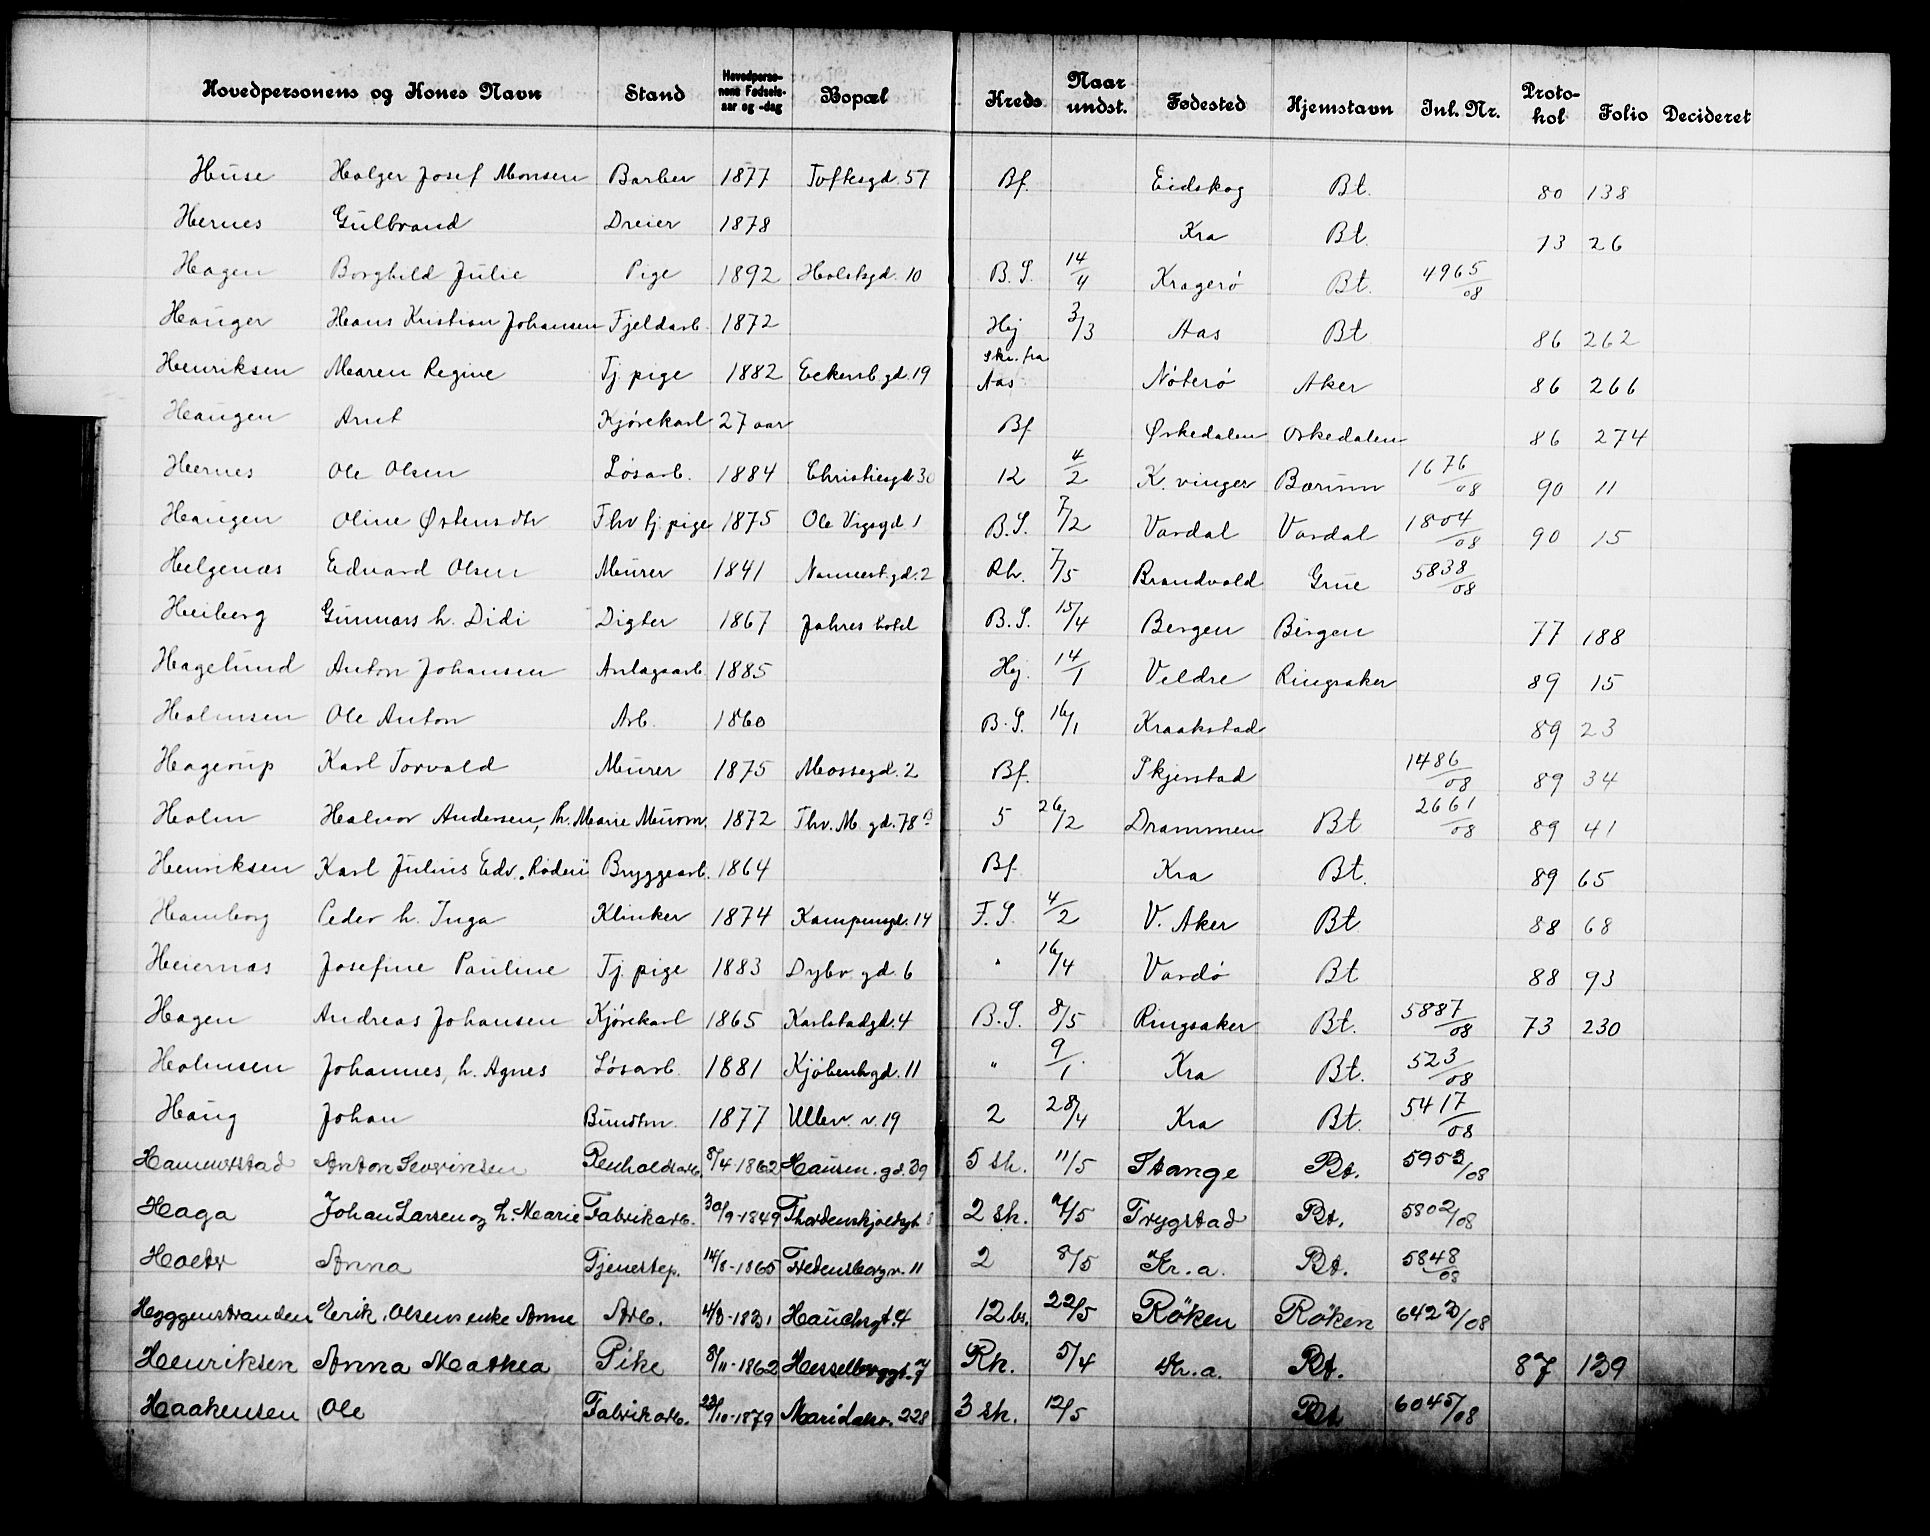 Hovedpersonens og Kones Navn Stand Hovedperso-nens Fødsels-aar og -dag Bopæl Kreds Naar undst. Fødested Hjemstavn Inl. Nr. Proto-kol Folio Decideret
Huse Holger Josef Monsen Barber 1877 Toftesgd. 57 Bf. Eidskog Bt. 80 138
Hernes Gulbrand Dreier 1878 Kra Bt. 73 26
Hagen Borghild Julie Pige 1892 Holstsgd. 10 B.S. 14/4 Kragerø Bt. 4965/08
Hauger Hans Kristian Johansen Fjeldarb. 1872 Hj 3/3 Aas Bt 86 262
Henriksen Maren Regine Tj. pige 1882 Eckersb.gd. 19 Skr. fra Aas Nøterø Aker 86 266
Haugen Arnt Kjørekarl 27 aar Bf Ørkedalen Orkedalen 86 274
Hernes Ole Olsen Løsarb. 1884 Christiesgd. 30 12 4/2 K. vinger Bærum 1676/08 90 11
Haugen Oline Østensdtr Fhv tj. pige 1875 Ole Vigsgd. 1 B.S. 7/2 Vardal Vardal 1804/08 90 15
Helgenæs Edvard Olsen Murer 1841 Nannest.gd. 2 Rh. 7/5 Brandvold Grue 5838/08
Heiberg Gunnars h. Didi Digter 1867 Jahres hotel B.S. 15/4 Bergen Bergen 77 188
Hagelund Anton Johansen Anlagsarb 1885 Hj. 14/1 Veldre Ringsaker 89 15
Holmsen Ole Anton Arb. 1860 B.S. 16/1 Kraakstad 89 23
Hagerup Karl Torvald Murer 1875 Mossegd. 2 Bf. Skjerstad 1486/08 89 34
Holm Halvor Andersen, h. Marie Murm. 1872 Thv. M gd. 78 B 5 26/2 Drammen Bt 2661/08 89 41
Henriksen Karl Julius Edv. Bryggearb. 1864 Bf Kra Bt. 89 65
Hamborg Peder h. Inga Klinker 1874 Kampensgd. 14 F.S. 4/2 V. Aker Bt 88 68
Heiernæs Josefine Pauline Tj. pige 1883 Dybv. gd. 6 " 16/4 Vardø Bt 88 93
Hagen Andreas Johansen Kjørekarl 1865 Karlstadgd. 4 B.S. 8/5 Ringsaker Bt. 5887/08 73 230
Holmsen Johannes, h. Agnes Løsarb. 1881 Kjøbenhgd. 11 " 9/1 Kra Bt. 523/08
Haug Johan Buntm. 1877 Ullev. v. 19 2 28/4 Kra Bt. 5417/08
Hammerstad Anton Severinsen Renholdsarb. 8/4-1862 Hausm. gd. 39 5 sk. 11/5 Stange Bt. 5953/08
Haga Johan Larsen og h. Marie Fabrikarb. 30/9-1849 Thordenskjoldsgt 8 2 sk. 7/5 Trygstad Bt. 5802/08
Holter Anna Tjenestep. 14/8-1865 Fredensborgv. 11 2 8/5 Kr.a. Bt. 5848/08
Heggenstranden Eerik. Olsens enke Anne Arb. Hauchsgt. 4 12 bs. 22/5 Røken Røken 6422/08
Henriksen Anna Mathea Pike 8/11-1862 Hesselberggt. 7 Rk. 5/4 Kr.a. Bt. 87 139
Haakensen Ole Fabrikarb. 23/10-1879 Maridalsv. 228 3 sk. 12/5 Bt 6045/08